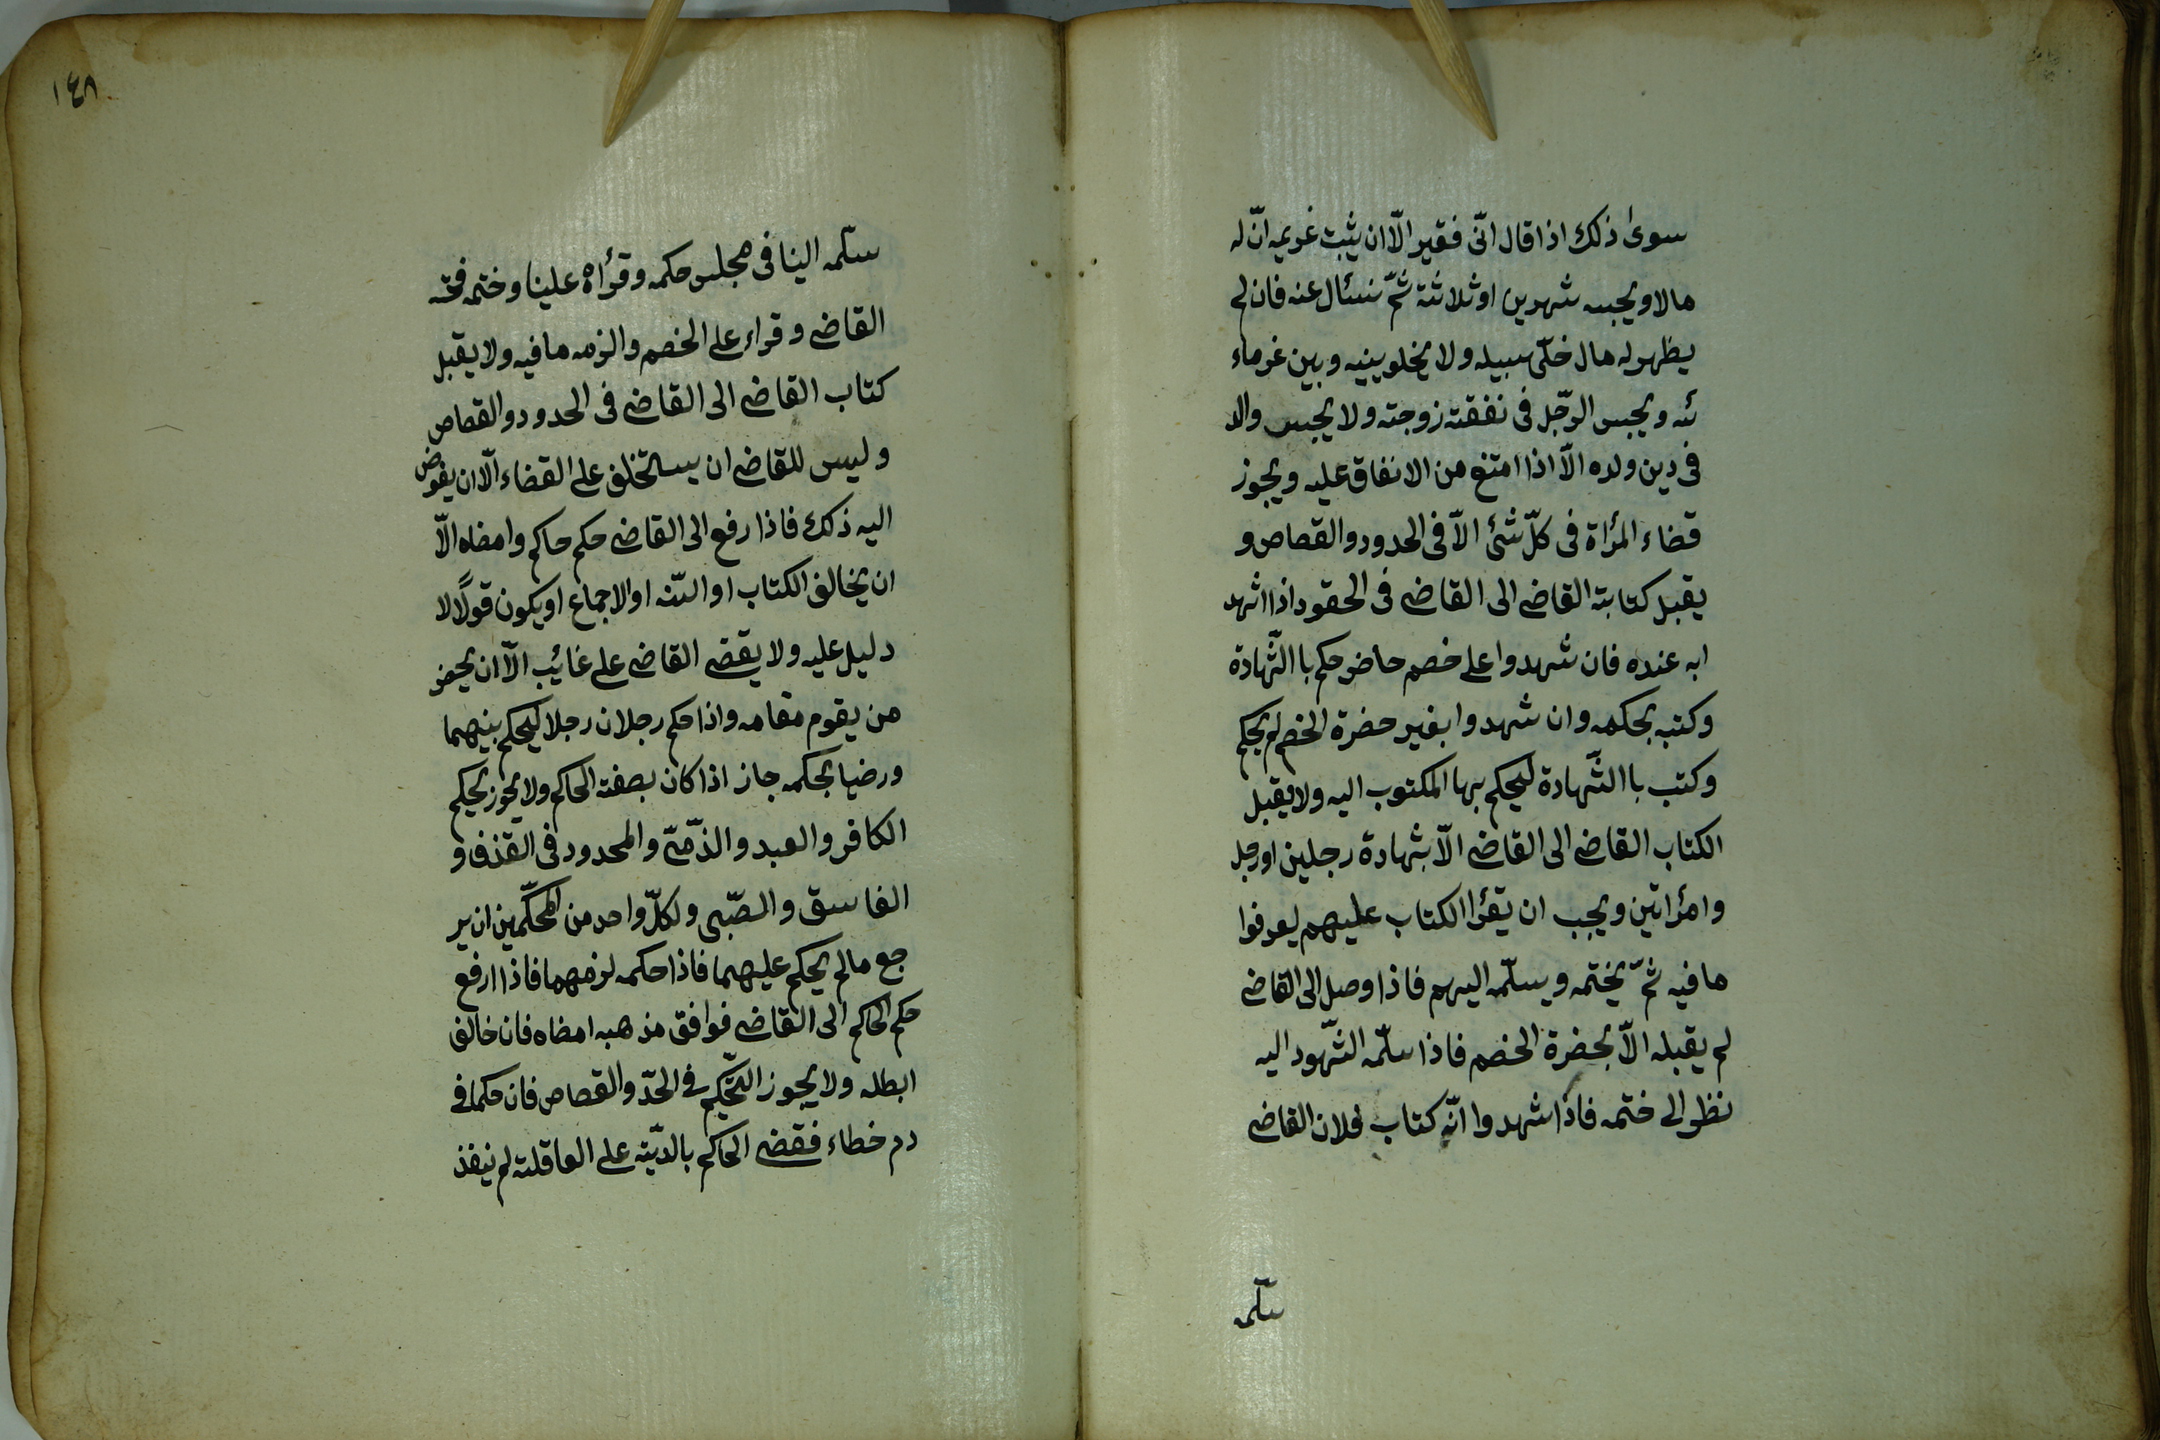 سوى ذلك اذا قال انّى فقير الّا ان يثبت غريمه انّ له
مالا ويحبسه شهرين او ثلاثة ثمّ نسئال عنه فان لم
يظهر له مال خلّى سبيله ولا يخلو بينه وبين غرماء
ئه ويحبس الرّجل فى نفقته زوجته ولا يحبس والد
فى دين ولده الّا اذا امتنع من الانفاق عليه ويجوز
قضاء المرأة فى كلّ شئ الّا فى الحدود والقصاص و
يقبل كتابة القاضى الى القاضى فى الحقود اذا اشهد
ابه عنده فان شهدوا على خصم حاضر حكم با الشّهادة
وكتبه بحكمه وان شهدوا بغير حضرة الخصم لم يحكم
وكتب با الشّهادة ليحكم بها المكتوب اليه ولا يقبل
الكتاب القاضى الى القاضى الّا بشهادة رجلين او رجل
وامرأتين ويجب ان يقرأ الكتاب عليهم ليعرفوا
ما فيه ثمّ يختمه ويسلّمه اليهم فاذا وصل الى القاضى
لم يقبله الّا بحضرة الخصم فاذا سلّمه الشّهود اليه
نظر الى ختمه فاذا شهدوا انّه كتاب فلان القاضى
سلّمه
١٤٨
سلّمه الينا فى مجلس حكمه وقرأه علينا وختمه فتحه
القاضى وقراء على الخصم والزمه ما فيه ولا يقبل
كتاب القاضى الى القاضى فى الحدود والقصاص
وليس للقاضى ان يستخلف على القضاء الّا ان يفوض
اليه ذلك فاذا رفع الى القاضى حكم حاكم وامضاه الّا
ان يخالف الكتاب او السّنه او الاجماع او يكون قولًا لا
دليل عليه ولا يقضى القاضى على غائب الّا ان يحضر
من يقوم مقامه واذا حكم رجلان رجلا ليحكم بينهما
ورضيا بحكمه جاز اذا كان بصفته الحاكم ولا يجوز تحكيم
الكافر والعبد والذّمّى والمحدود فى القذف و
الفاسق والصّبى ولكلّ واحد من المحكّمين ان ير
جع ما لم يحكم عليهما فاذا حكمه لزمهما فاذا ارفع
حكم الحاكم الى القاضى فوافق مذهبه امضاه فان خالف
ابطله ولا يجوز التّحكيم فى الحدّ والقصاص فان حكما فى
دم خطاء فقضى الحاكم بالدّيته على العاقلته لم ينفذ